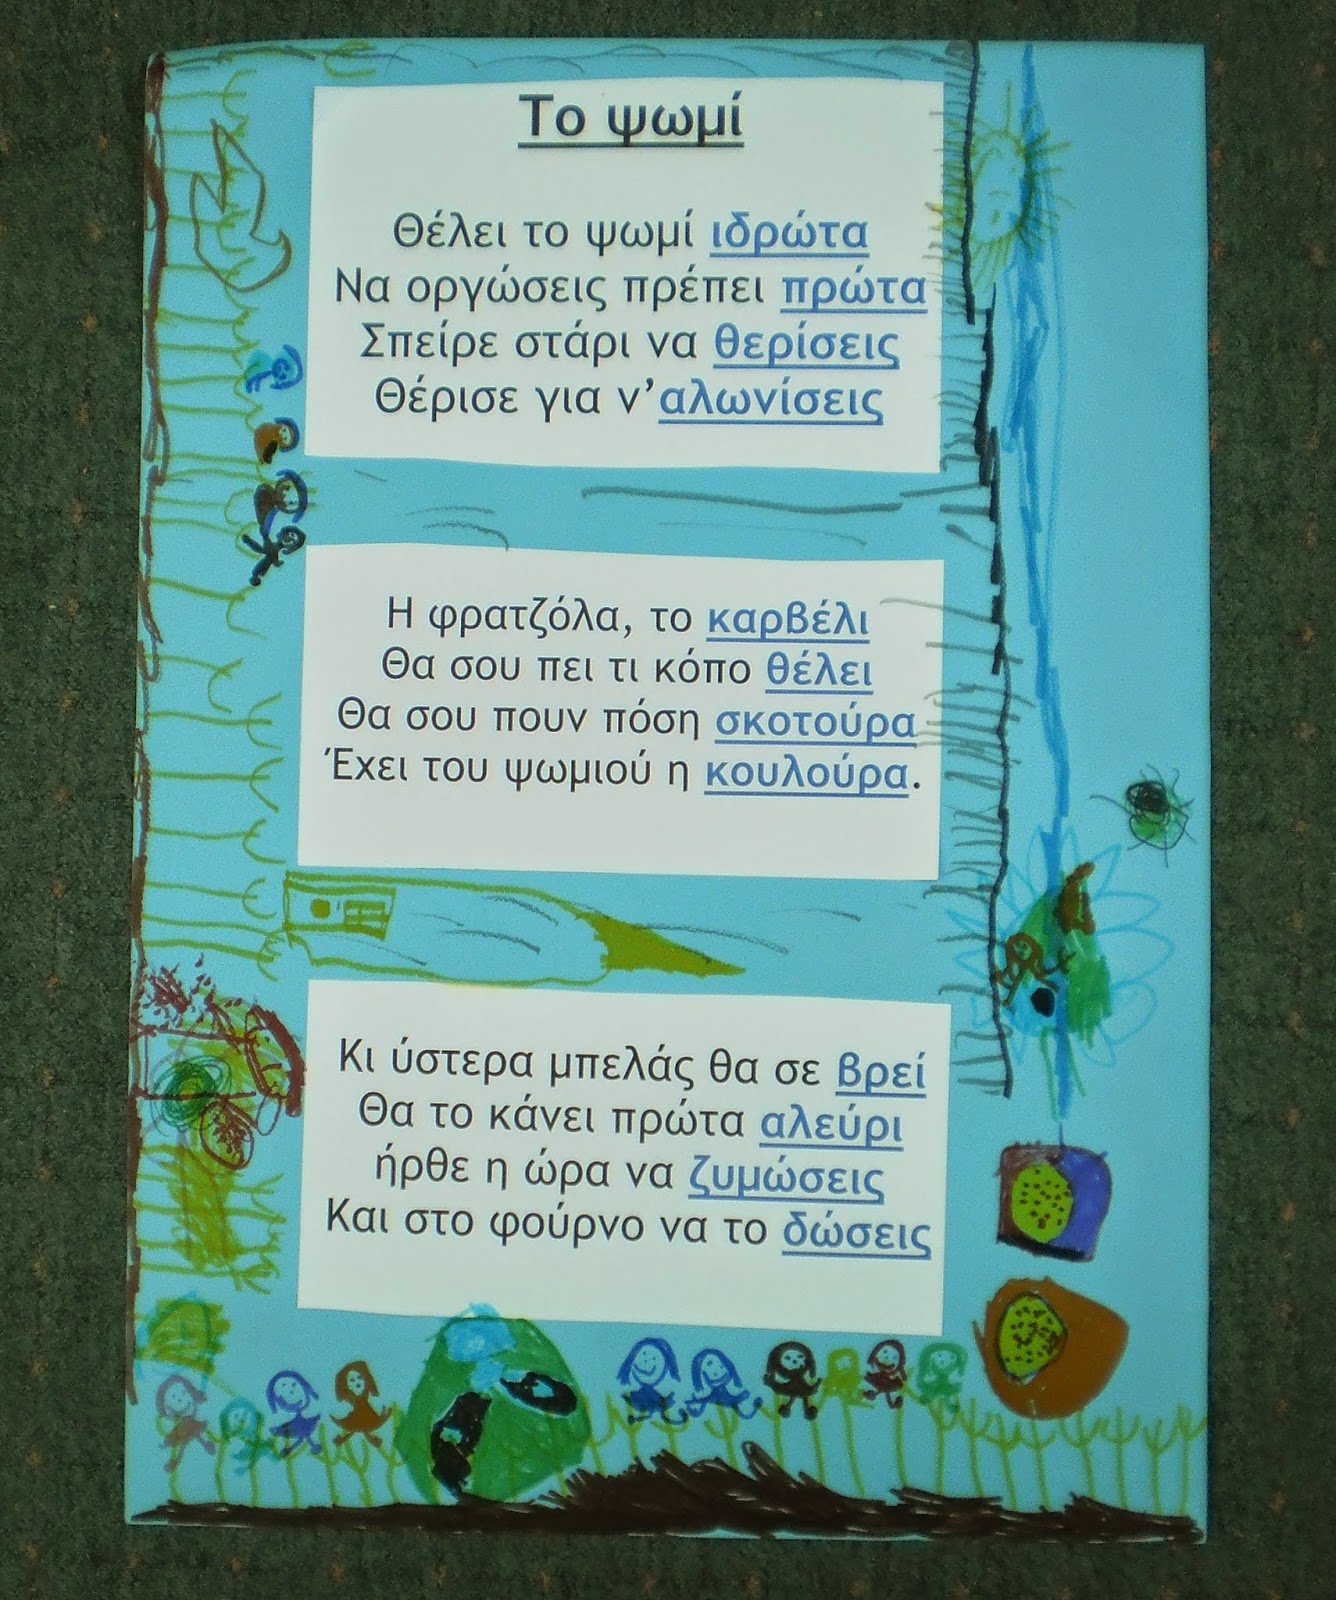 Το ψωμί
Θέλει το ψωμί ιδρώτα
Να οργώσεις πρέπει πρώτα
Σπείρε στάρι να θερίσεις
Θέρισε για ν'αλωνίσεις
Η φρατζόλα, το καρβέλι
Θα σου πει τι κόπο θέλει
Θα σου πουν πόση σκοτούρα
Έχει του ψωμιού η κουλούρα.
Κι ύστερα μπελάς θα σε βρεί
Θα το κάνει πρώτα αλεύρι
ήρθε η ώρα να ζυμώσεις
Και στο φούρνο να το δώσεις